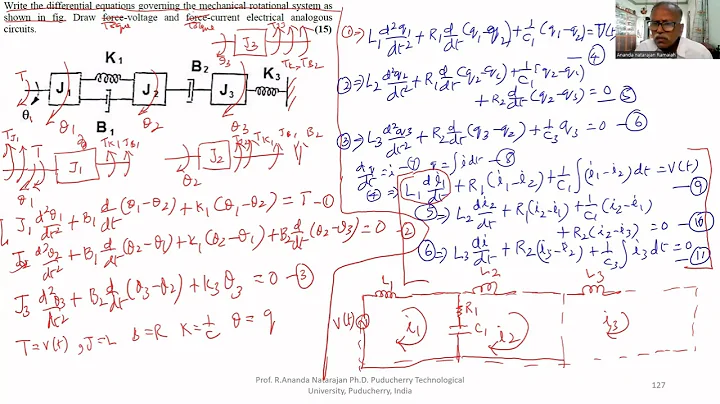 Write the differential equations governing the mechanical rotational system as
shown in fig. Draw force-voltage and force-current electrical analogous
circuits. (15)
Torque Torque
K₁ B₂ K₃
T J₁ J₂ J₃
θ₁ θ₂ θ₃
B₁
J₃
T_K3 T_B2
T_J1 T J₁ T_K1 T_B1
θ₁
J₂ T_K1 T_B1 B₂
θ₂
J₁ d²θ₁/dt² + B₁ d/dt (θ₁-θ₂) + K₁(θ₁-θ₂) = T —①
J₂ d²θ₂/dt² + B₁ d/dt (θ₂-θ₁) + K₁(θ₂-θ₁) + B₂ d/dt (θ₂-θ₃) = 0 —②
J₃ d²θ₃/dt² + B₂ d/dt (θ₃-θ₂) + K₃θ₃ = 0 —③
T=V(t), J=L B=R K=1/C θ=q
①⇒ L₁ d²q₁/dt² + R₁ d/dt (q₁-q₂) + 1/C₁ (q₁-q₂) = V(t) —④
②⇒ L₂ d²q₂/dt² + R₁ d/dt (q₂-q₁) + 1/C₁ (q₂-q₁)
+ R₂ d/dt (q₂-q₃) = 0 —⑤
③⇒ L₃ d²q₃/dt² + R₂ d/dt (q₃-q₂) + 1/C₃ q₃ = 0 —⑥
dq/dt = i —⑦ q = ∫i dt —⑧
④⇒ L₁ di₁/dt + R₁(i₁-i₂) + 1/C₁ ∫(i₁-i₂)dt = V(t) —⑨
⑤⇒ L₂ di₂/dt + R₁(i₂-i₁) + 1/C₁ (i₂-i₁)
+ R₂(i₂-i₃) = 0 —⑩
⑥⇒ L₃ di/dt + R₂(i₃-i₂) + 1/C₃ ∫i₃dt = 0 —⑪
L₁ L₂ L₃
V(t) i₁ R₁ C₁ i₂ i₃
Ananda Natarajan Ramaiah
Prof. R.Ananda Natarajan Ph.D. Puducherry Technological
University, Puducherry, India
127